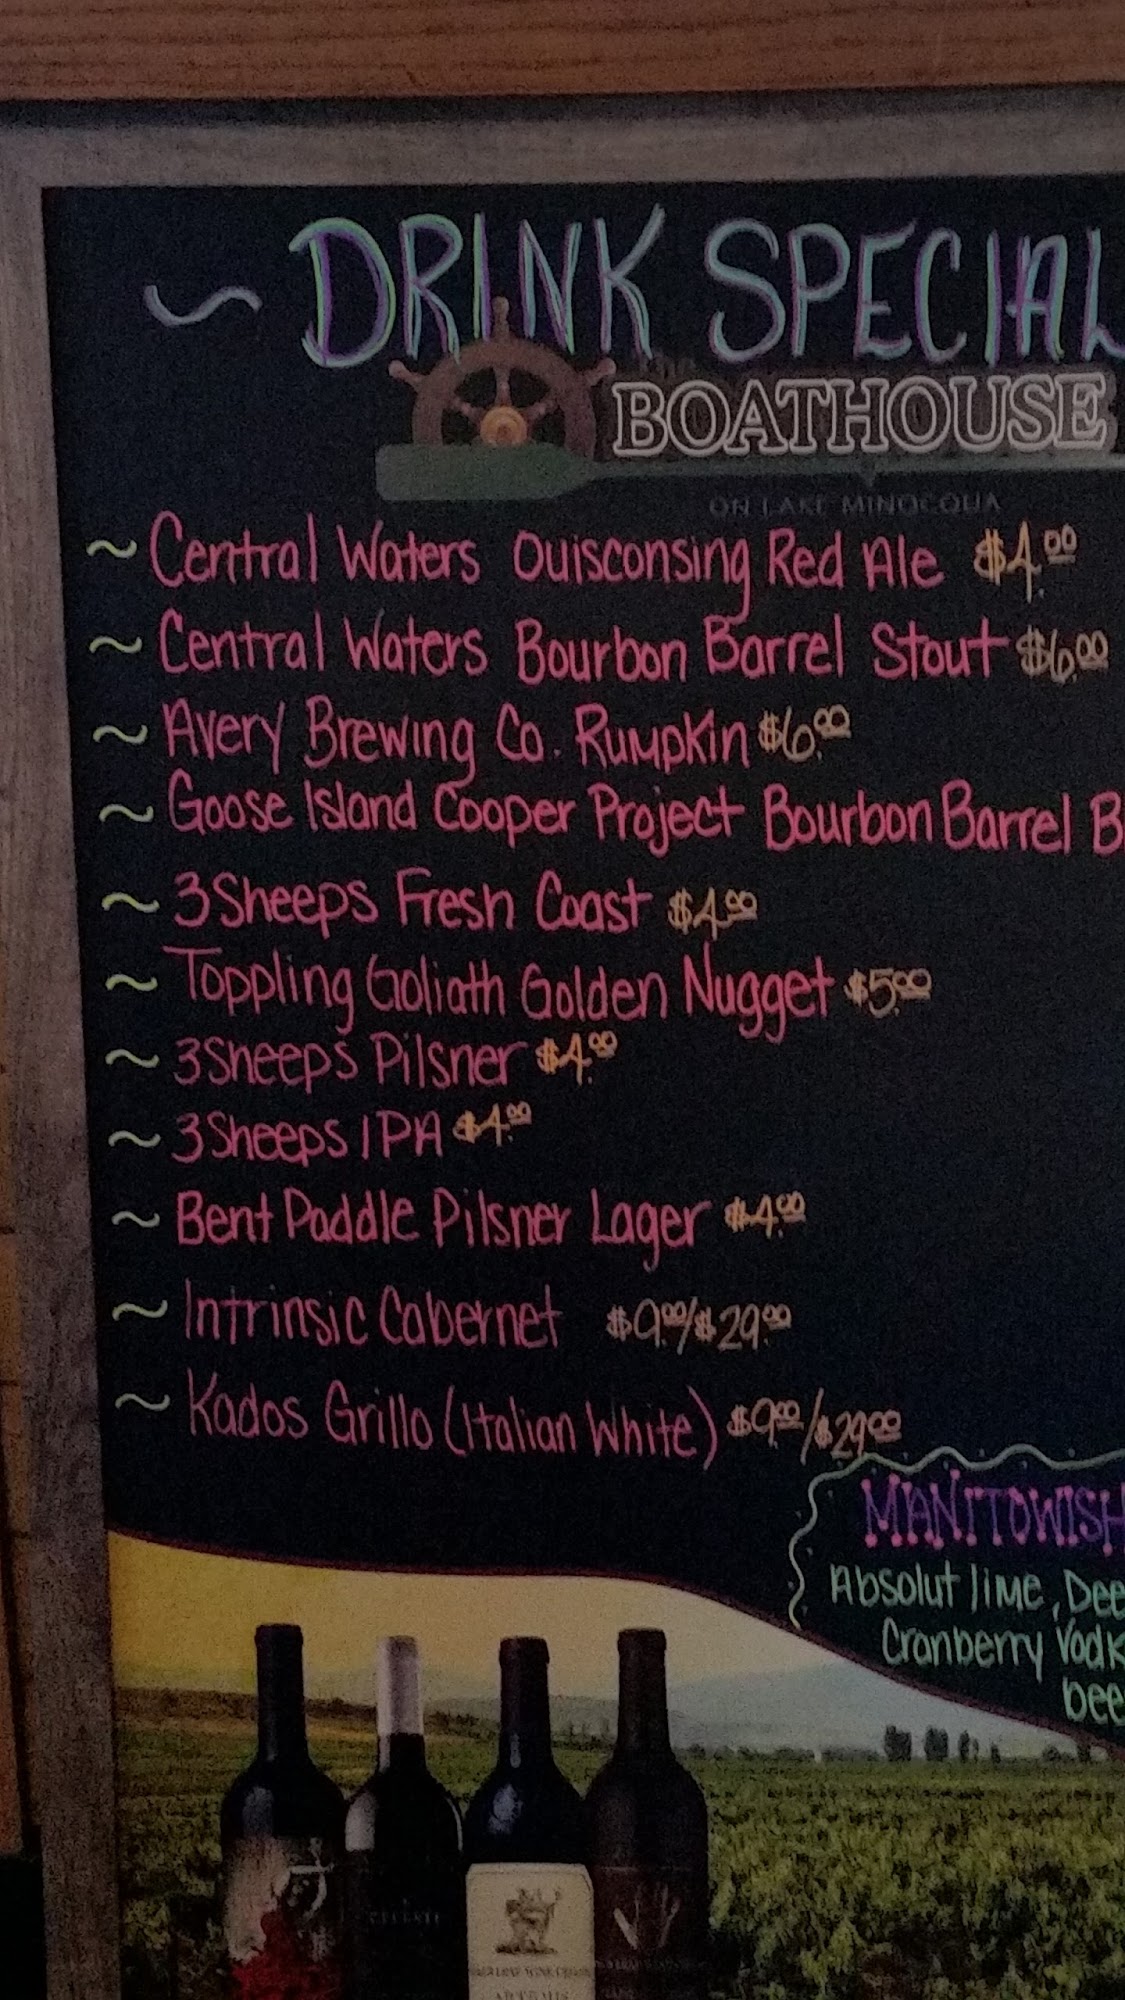 ~ DRINK SPECIAL
BOATHOUSE
ON LAKE MINOCQUA
~ Central Waters Ouisconsing Red Ale $4.00
~ Central Waters Bourbon Barrel Stout $6.00
~ Avery Brewing Co. Rumpkin $6.00
~ Goose Island Cooper Project Bourbon Barrel B
~ 3Sheeps Fresh Coast $4.00
~ Toppling Goliath Golden Nugget $5.00
~ 3Sheeps Pilsner $4.00
~ 3Sheeps IPA $4.00
~ Bent Paddle Pilsner Lager $4.00
~ Intrinsic Cabernet $9.00/$29.00
~ Kados Grillo (Italian White) $9.00/$29.00
MANITOWISH
Absolut lime, Dee
Cranberry Vodk
bee